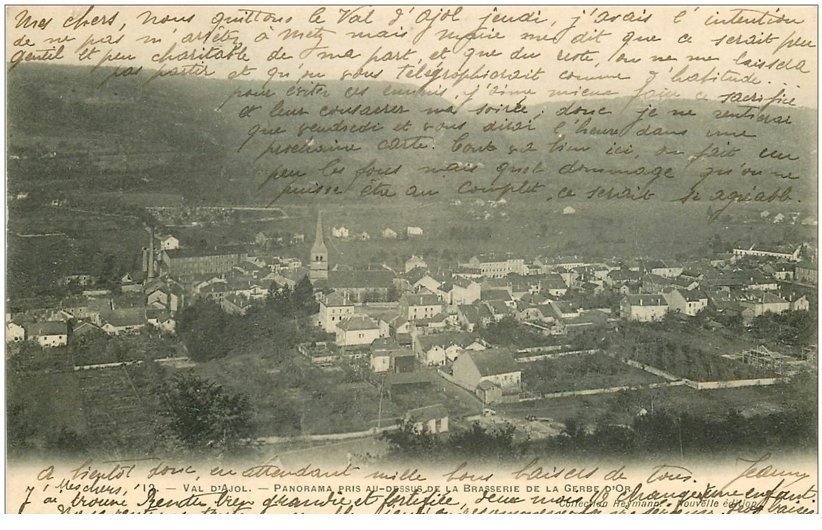 Mes chers, nous quittons le Val d'Ajol jeudi, j'avais l'intention
de ne pas m'arrêter à Metz mais Marie me dit que ce serait peu
gentil et peu charitable de ma part et que du reste, on ne me laissera
pas partir et qu'on vous télégraphierait comme d'habitude.
pour éviter ces ennuis j'aime mieux faire ce sacrifice
et leur consacrer ma soirée, donc je ne rentrerai
que vendredi et vous dirai l'heure dans une
prochaine carte. Tout va bien ici, on fait un
peu les fous mais quel dommage qu'on ne
puisse être au complet, ce serait si agréable.
à bientôt donc, en attendant mille bons baisers de tous. Jeanny
Mes chers, 12. — VAL D'AJOL. — PANORAMA PRIS AU-DESSUS DE LA BRASSERIE DE LA GERBE D'OR
j'ai trouvé bien grandie et fortifiée, deux mois changent une enfant
Collection Nouvelle édition